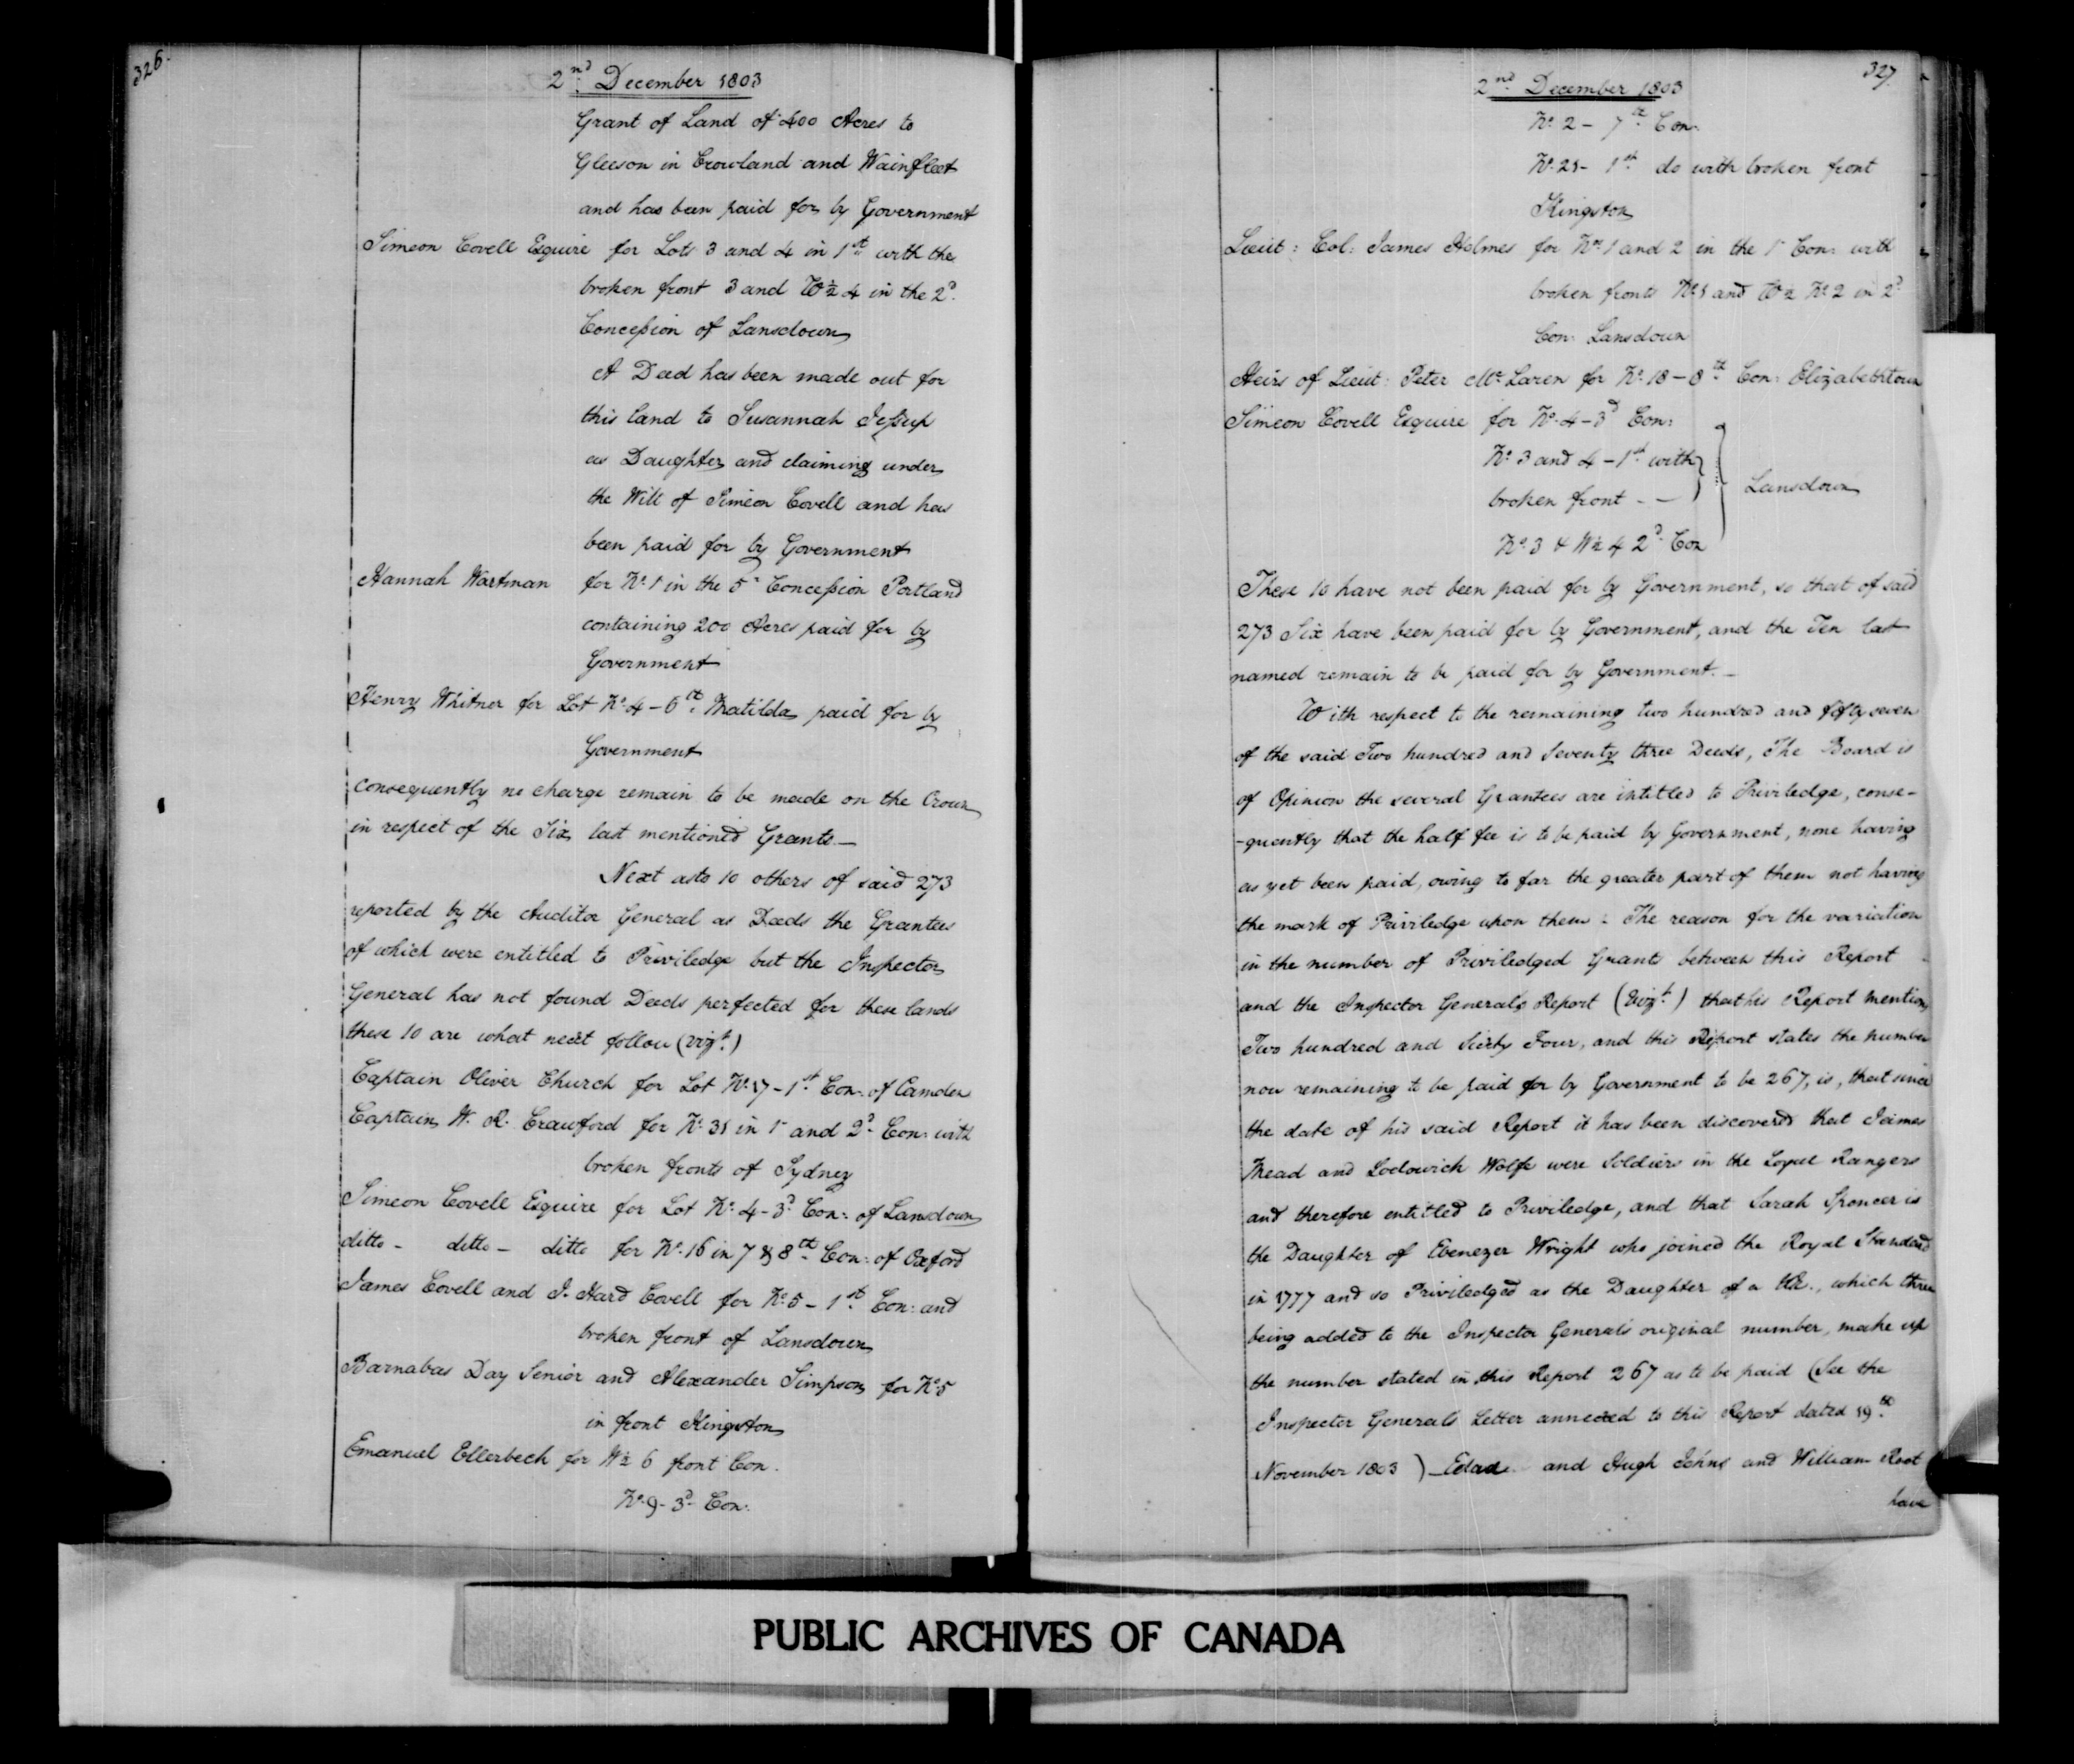 326.
2nd December 1803
Grant of Land of 400 Acres to
Gleeson in Crowland and Wainfleet
and has been paid for by Government
Simeon Covell Esquire for Lots 3 and 4 in 1st with the
broken front 3 and W½ 4 in the 2d.
Concession of Lansdown
A Deed has been made out for
this land to Susannah Jessup
as Daughter and claiming under
the Will of Simeon Covell and has
been paid for by Government
Hannah Wartman for No. 1 in the 5th Concession Portland
containing 200 Acres paid for by
Government
Henry Whitner for Lot No. 4 - 6th. Matilda paid for by
Government
consequently no charge remain to be made on the Crown
in respect of the Six last mentioned Grants —
Next as to 10 others of said 273
reported by the Auditor General as Deeds the Grantees
of which were entitled to Priviledge but the Inspector
General has not found Deeds perfected for these lands
these 10 are what next follow (vizt.)
Captain Oliver Church for Lot No. 17 - 1st Con: of Camden
Captain W. R. Crawford for No. 31 in 1st and 2d. Con: with
broken fronts of Sydney
Simeon Covell Esquire for Lot No. 4 - 3d Con: of Lansdown
ditto - ditto - ditto for No. 16 in 7 & 8th Con: of Oxford
James Covell and J. Hard Covell for No. 5 - 1st. Con: and
broken front of Lansdown
Barnabas Day Senior and Alexander Simpson for No. 5
in front Kingston
Emanuel Ellerbeck for W½ 6 front Con.
No. 9 - 3d. Con:
327
2nd. December 1803
No. 2 - 7th. Con:
No. 21 - 1st do with broken front
Kingston
Lieut: Col: James Holmes for Nos 1 and 2 in the 1st Con: with
broken fronts No. 1 and W½ No. 2 in 2d
Con: Lansdown
Heirs of Lieut: Peter McLaren for No. 18 - 8th. Con: Elizabethtown
Simeon Covell Esquire for No. 4 - 3d Con:
No. 3 and 4 - 1st with
broken front - —
Lansdown
No. 3 & W½ 4 2d. Con
These 10 have not been paid for by Government, so that of said
273 Six have been paid for by Government, and the Ten last
named remain to be paid for by Government. —
With respect to the remaining two hundred and fifty seven
of the said Two hundred and Seventy three Deeds, The Board is
of Opinion the several Grantees are intitled to Priviledge, conse-
-quently that the half fee is to be paid by Government, none having
as yet been paid, owing to far the greater part of them not having
the mark of Priviledge upon them: The reason for the variation
in the number of Priviledged Grants between this Report
and the Inspector Generals Report (vizt.) that his Report mentions
Two hundred and Sixty Four, and this Report states the number
now remaining to be paid for by Government to be 267, is, that since
the date of his said Report it has been discovered that James
Mead and Lodowick Wolfe were Soldiers in the Loyal Rangers
and therefore entitled to Priviledge, and that Sarah Spencer is
the Daughter of Ebenezer Wright who joined the Royal Standard
in 1777 and so Priviledged as the Daughter of a UE., which three
being added to the Inspector Generals original number, make up
the number stated in this Report 267 as to be paid (See the
Inspector Generals Letter annexed to this Report dated 19th.
November 1803) — and Hugh Johns and William Root
have
PUBLIC ARCHIVES OF CANADA